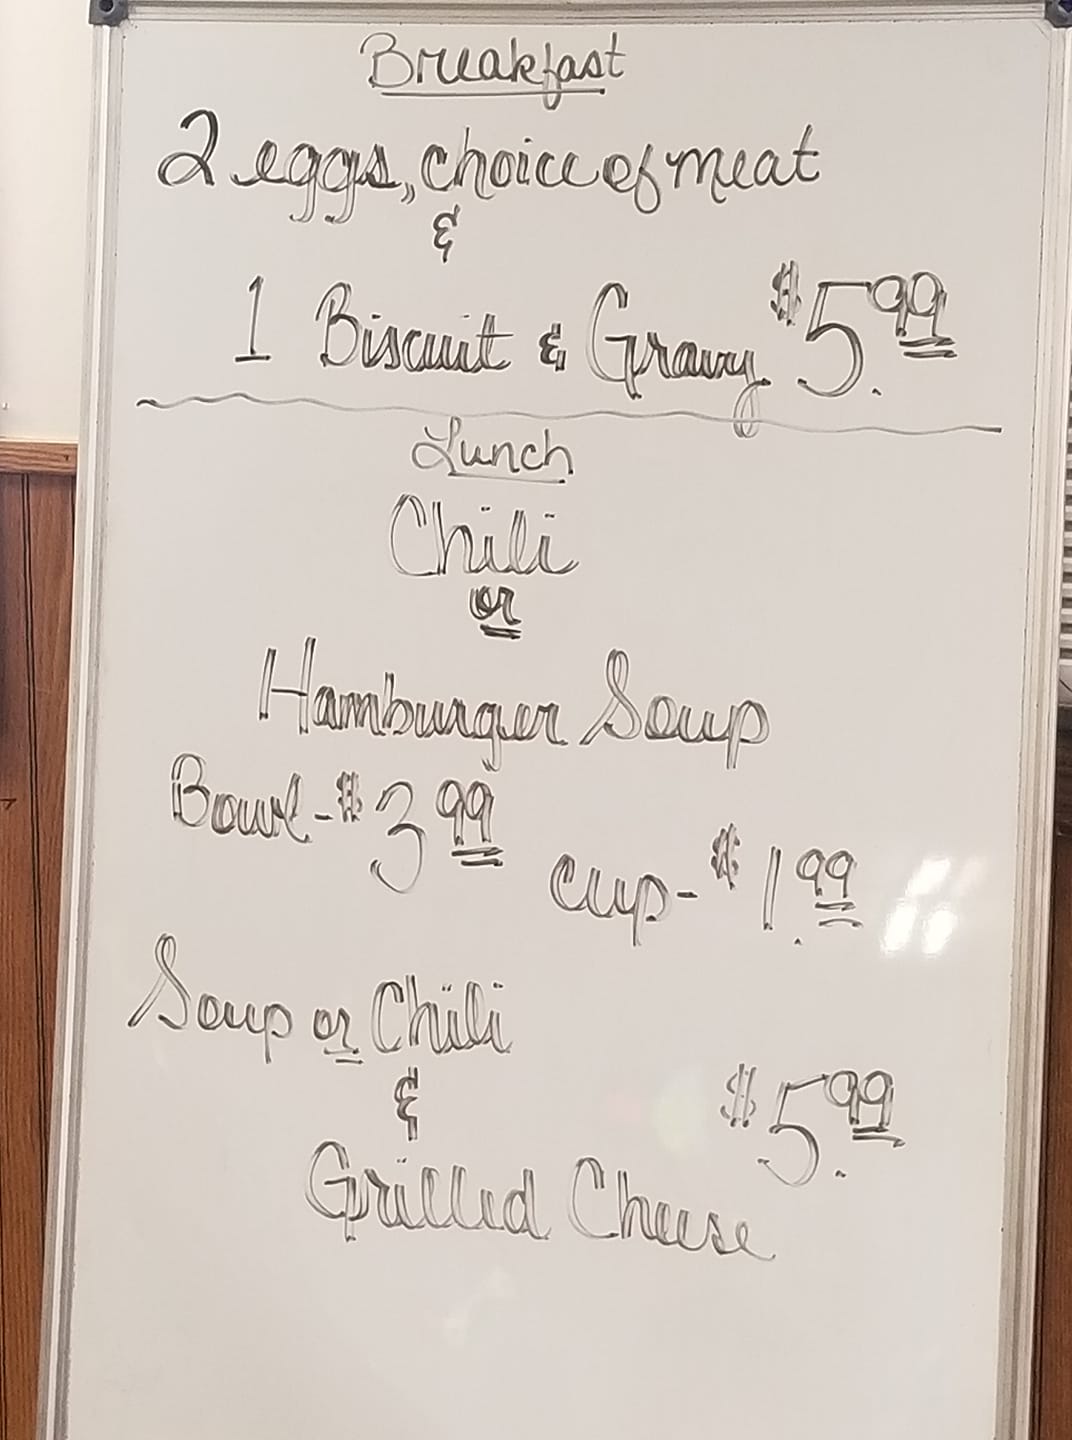 Breakfast
2 eggs, choice of meat
&
1 Biscuit & Gravy $5.99
Lunch
Chili
or
Hamburger Soup
Bowl-$3 99
Cup-$1.99
Soup or Chili
&
$5.99
Grilled Cheese